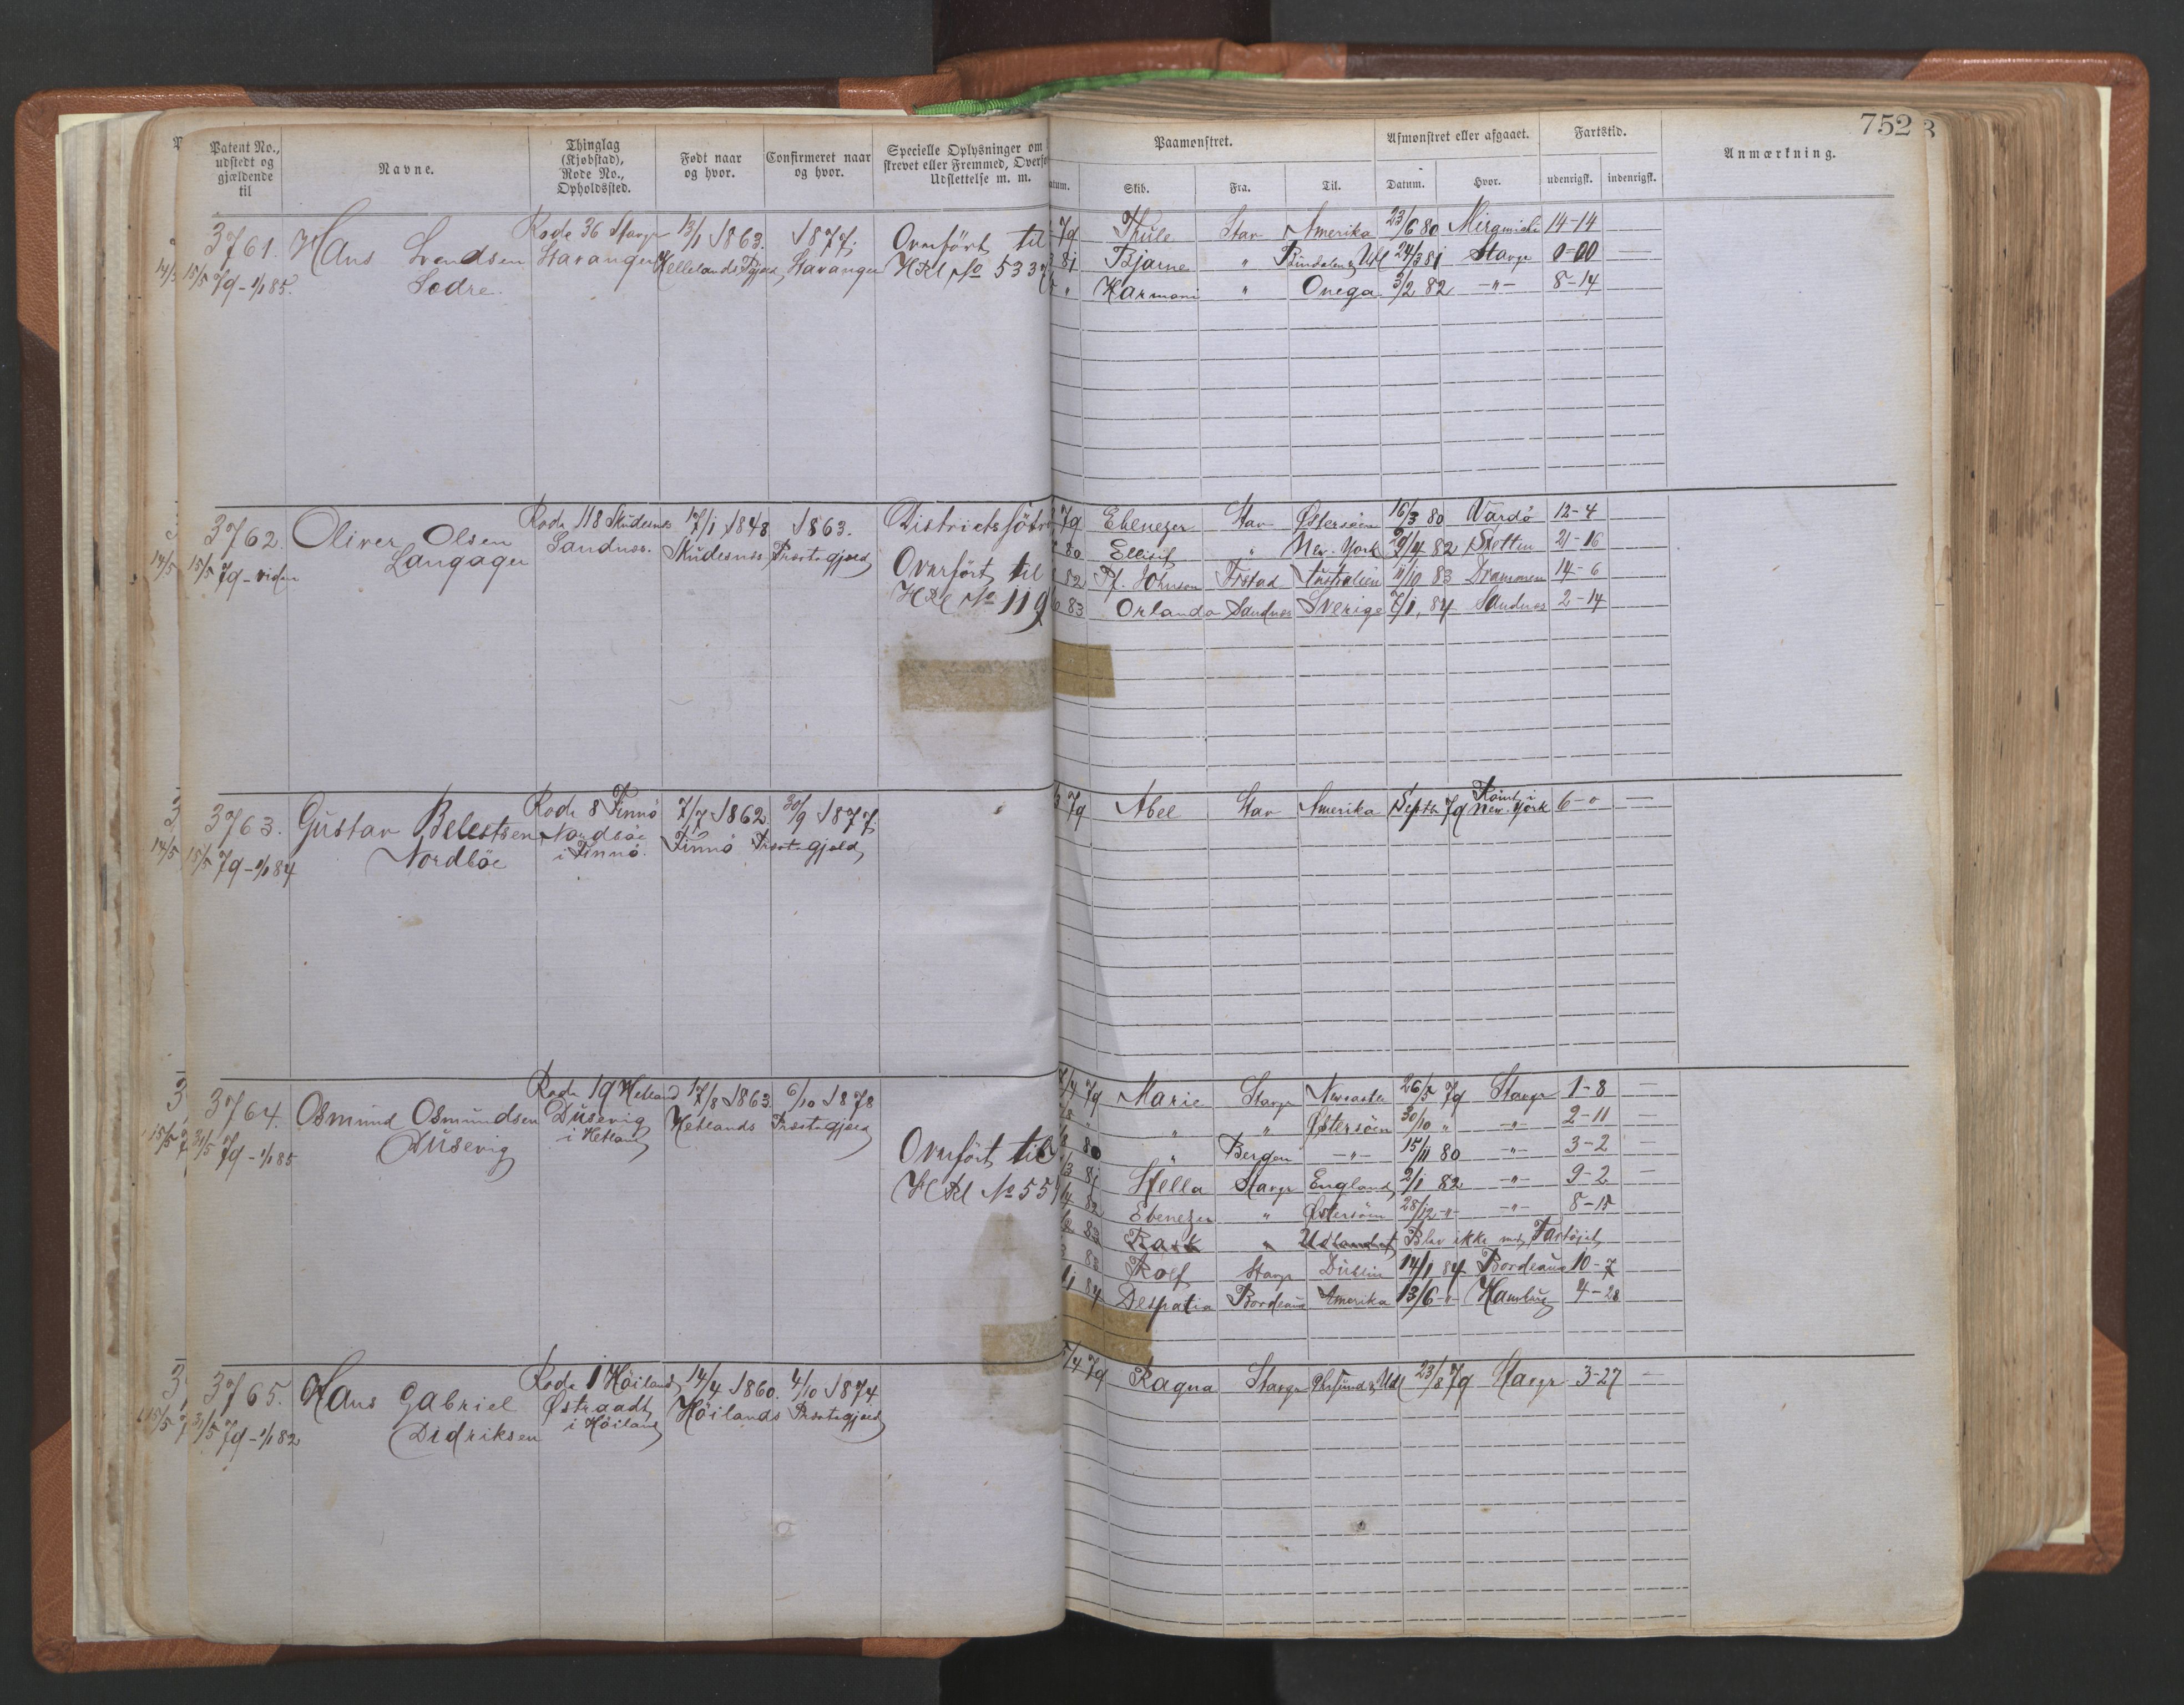 752
Patent No., udstedt og gjældende til
Navne.
Thinglag (Kjøbstad), Rode No., Opholdssted.
Født naar og hvor.
Confirmeret naar og hvor.
Specielle Oplysninger om
skrevet eller Fremmed,
Udslettelse m. m.
Paamønstret.
Afmønstret eller afgaaet.
Fartstid.
Anmærkning.
Skib.
Fra.
Til.
Datum.
Hvor.
udenrigsk.
indenrigsk.
3761. Hans Svendsen Rode 36 Stavgr 13/1 1863. 1877. Overfört til
15/5 79 - 1/1 85. Sodre Stavanger Hellelands Pgjæld, Stavanger HRl No 533
79 Thule Stav Amerika 23/6 80 14-14
81 Bjarne " & Udl 24/3 81 Stavgr 0-00
" Harmoni " Onega 3/2 82 -"- 8-14
3762. Oliver Olsen Rode 118 Skudesnes 17/1 1848 1863.
15/5 79 - Langager Sandnes. Skudesnes Præstegjæld
Overfört til
HRl No 119
79 Ebenezer Stav Østersöen 16/3 80 Vardö 12-4
80 Ellisif " New-York /4 82 Stettin 21-16
82 Pf. Johnson Fr.stad Australien 11/10 83 Drammen 14-6
83 Orlando Sandnes Sverige 7/1 84 Sandnes 2-14
3763. Gustav Belestsen Rode 8 Finnö 7/7 1862. 30/9 1877.
15/5 79 - 1/1 84 Nordböe Nordböe i Finnö. Finnö Præstegjæld
79 Abel Stav Amerika Septb. 79 Römt i New-York 6-0 —
3764. Osmund Osmundsen Rode 19 Hetland 17/8 1863. 6/10 1878
31/5 79 - 1/1 85 Dusevig Dusevig i Hetland Hetlands Præstegjæld
Overfört til
HRl No 55
79 Marie Stavgr Newcastle 26/5 79 Stavgr 1-8 —
" " Østersöen 30/10 " -"- 2-11 —
80 " Bergen -"- 15/11 80 -"- 3-2 —
81 Stella Stavgr England 2/1 82 -"- 9-2 —
82 Ebenezer " Østersöen 28/12 -"- -"- 8-15
83 Rask " Udlandet Blev ikke med Fartöiet
83 Rolf Stavgr Dublin 14/1 84 Bordeaux 10-7
84 Despatia Bordeaux Amerika 13/6 -"- Hamburg 4-28
3765. Hans Gabriel Rode 1 Höiland 14/4 1860. 4/10 1874.
31/5 79 - 1/1 82 Didriksen Østraadt i Höiland Höilands Præstegjæld
/4 79 Ragna Stavgr & Udl 23/8 79 Stavgr 3-27 —